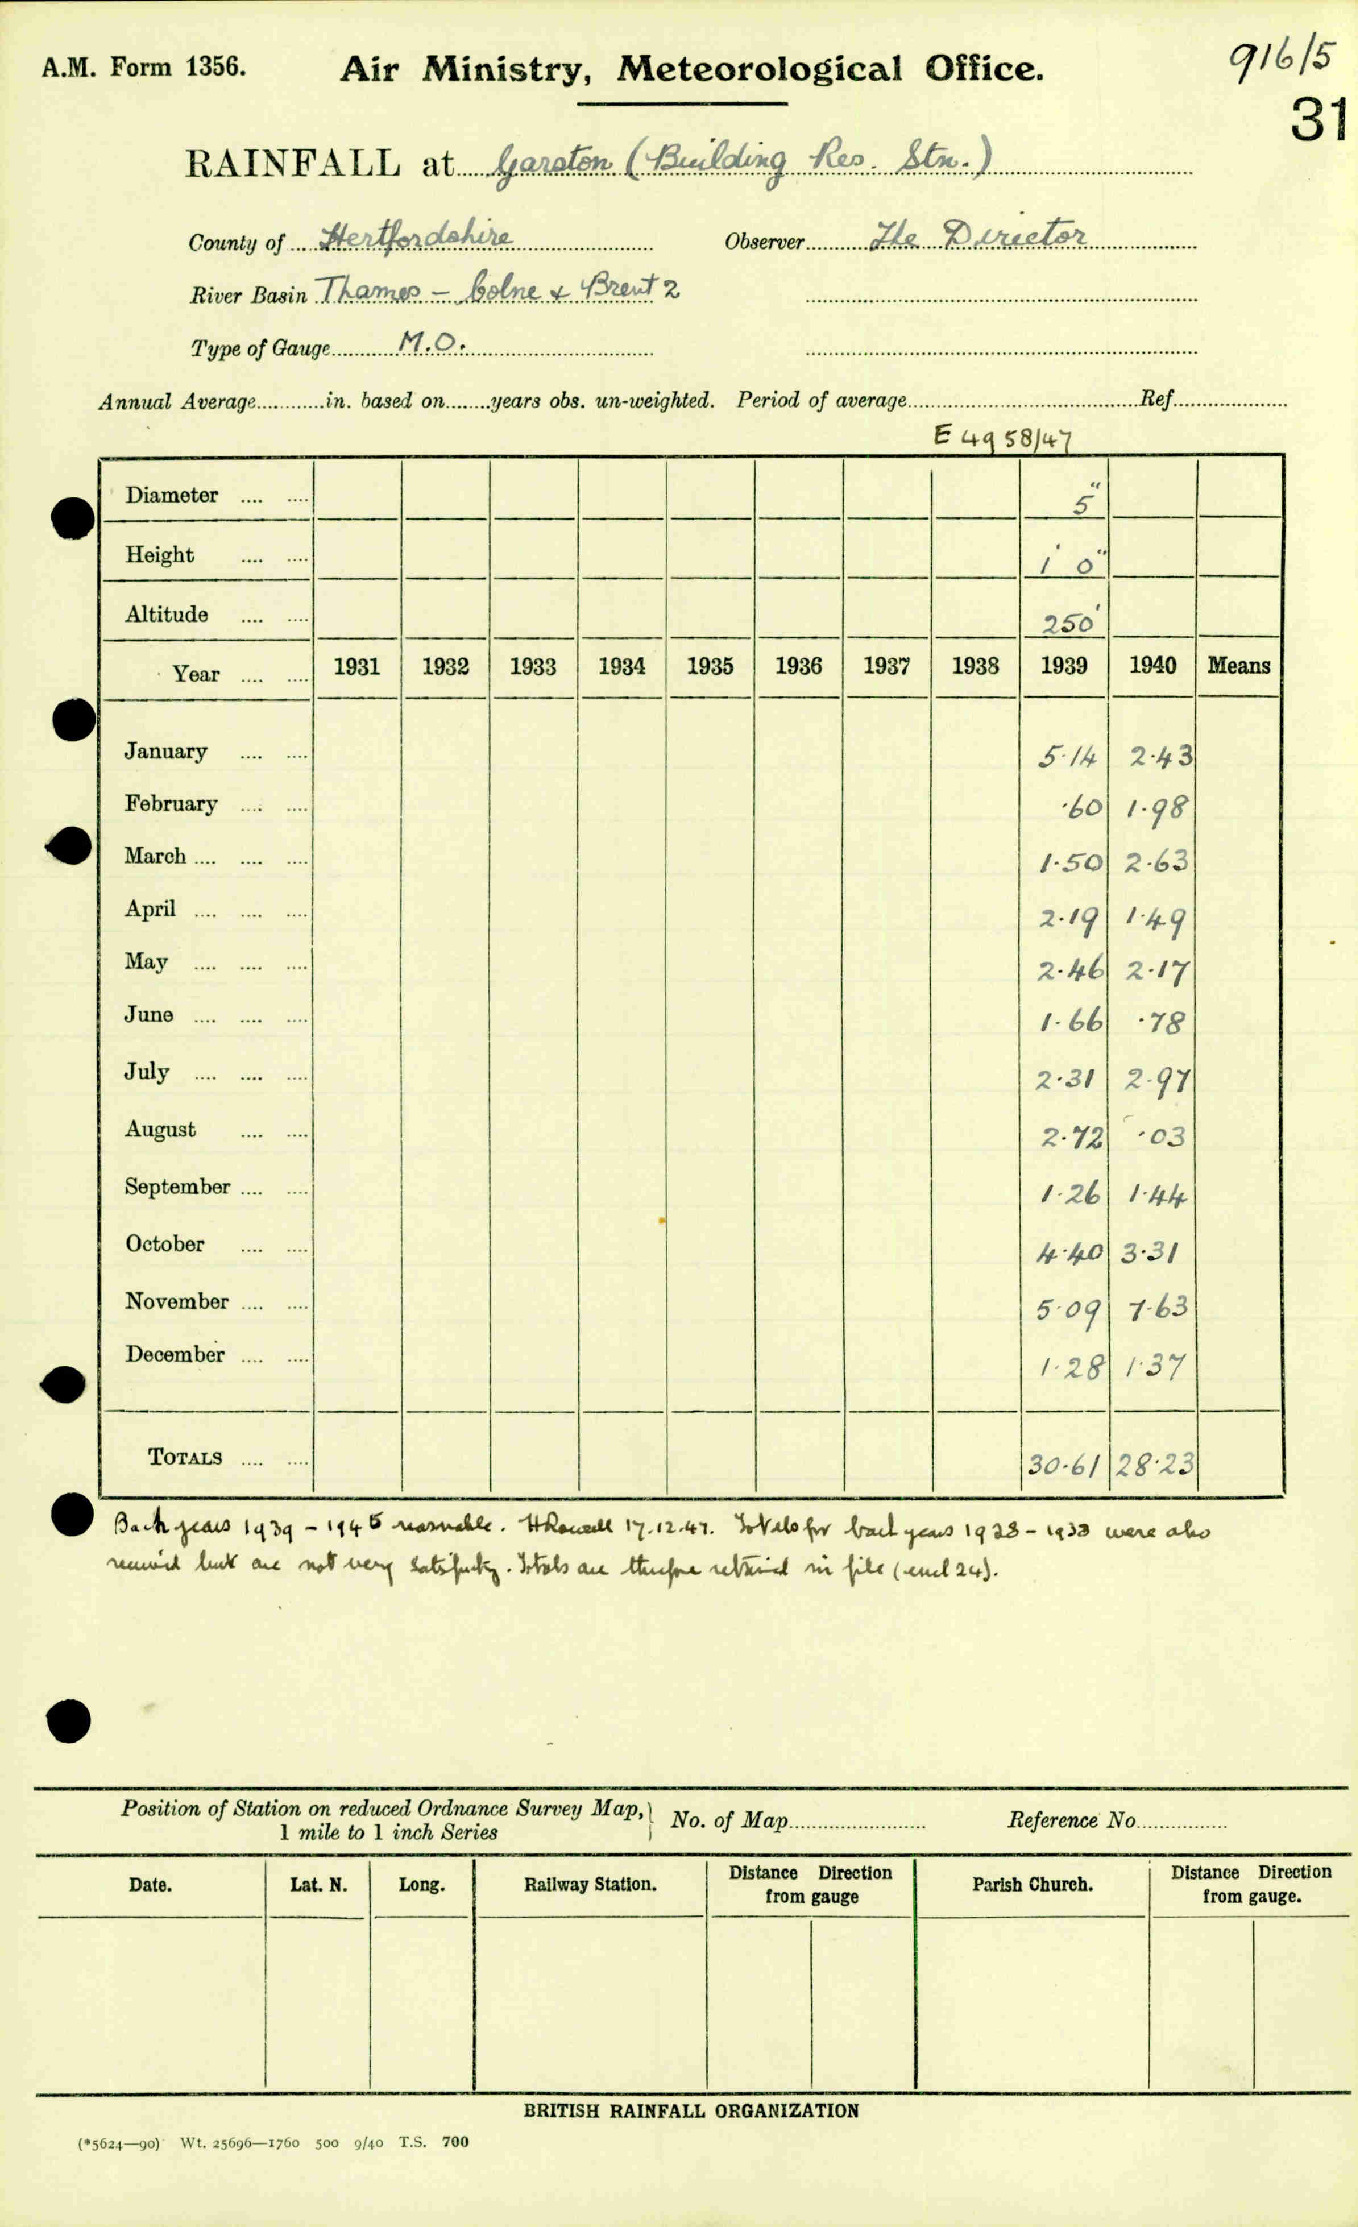 A.M. Form 1356. Air Ministry, Meteorological Office. 916/5
31
RAINFALL at Garston (Building Res. Stn.)
County of Hertfordshire Observer The Director
River Basin Thames - Colne & Brent 2
Type of Gauge M.O.
Annual Average in. based on years obs. un-weighted. Period of average Ref
E 4958/47
Diameter 5"
Height 1' 0"
Altitude 250'
Year 1931 1932 1933 1934 1935 1936 1937 1938 1939 1940 Means
January 5.14 2.43
February .60 1.98
March 1.50 2.63
April 2.19 1.49
May 2.46 2.17
June 1.66 .78
July 2.31 2.97
August 2.72 .03
September 1.26 1.44
October 4.40 3.31
November 5.09 7.63
December 1.28 1.37
TOTALS 30.61 28.23
Back years 1939 - 1945 reasonable. 17.12.47. Totals for back years 1928 - 1933 were also
received but are not very satisfactory. Totals are therefore retained in file (encl 24).
Position of Station on reduced Ordnance Survey Map, } No. of Map Reference No
1 mile to 1 inch Series
Date. Lat. N. Long. Railway Station. Distance Direction from gauge Parish Church. Distance Direction from gauge.
BRITISH RAINFALL ORGANIZATION
(*5624—90) Wt. 25696—1760 500 9/40 T.S. 700